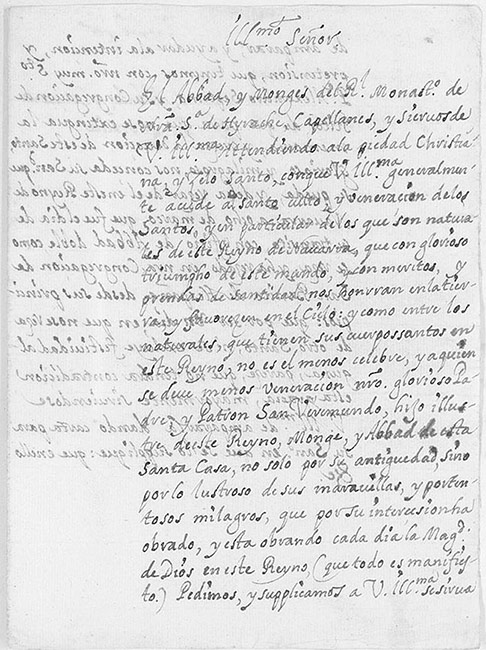 Ill.mo Señor
El Abbad, y Monges del R.l Monast.o de
N.ra S.a de Hyrache, Capellanes, y Siervos de
V. Ill.ma Attendiendo a la piedad Christia
na, y zelo Santo, con que V. Ill.ma generalmen
te atiende al Santo culto, y veneracion de los
Santos, y en particular de los que son natura
les de este Reyno de Navarra, que con glorioso
triumpho de este mundo, y con meritos, y
prendas de santidad, nos honrran en la tier
ra, y favorezen en el Cielo: y como entre los
naturales, que tienen sus cuerpos santos en
este Reyno, no es el menos celebre, y a quien
se deve menos veneracion nro. glorioso Pa
dre, y Patron San Veremundo, hijo illus
tre de este Reyno, Monge, y Abbad de esta
Santa Casa, no solo por su antiguedad, sino
por lo lustroso de sus maravillas, y porten
tosos milagros, que por su intercession ha
obrado, y esta obrando cada dia la Mag.d
de Dios en este Reyno, (que todo es manifies
to.) Pedimos, y supplicamos a V. Ill.ma se sirva